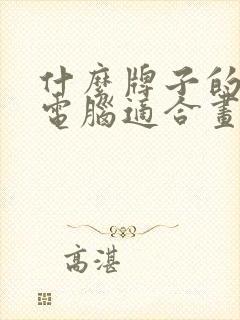 什麼牌子的
電腦適合畫
高湛